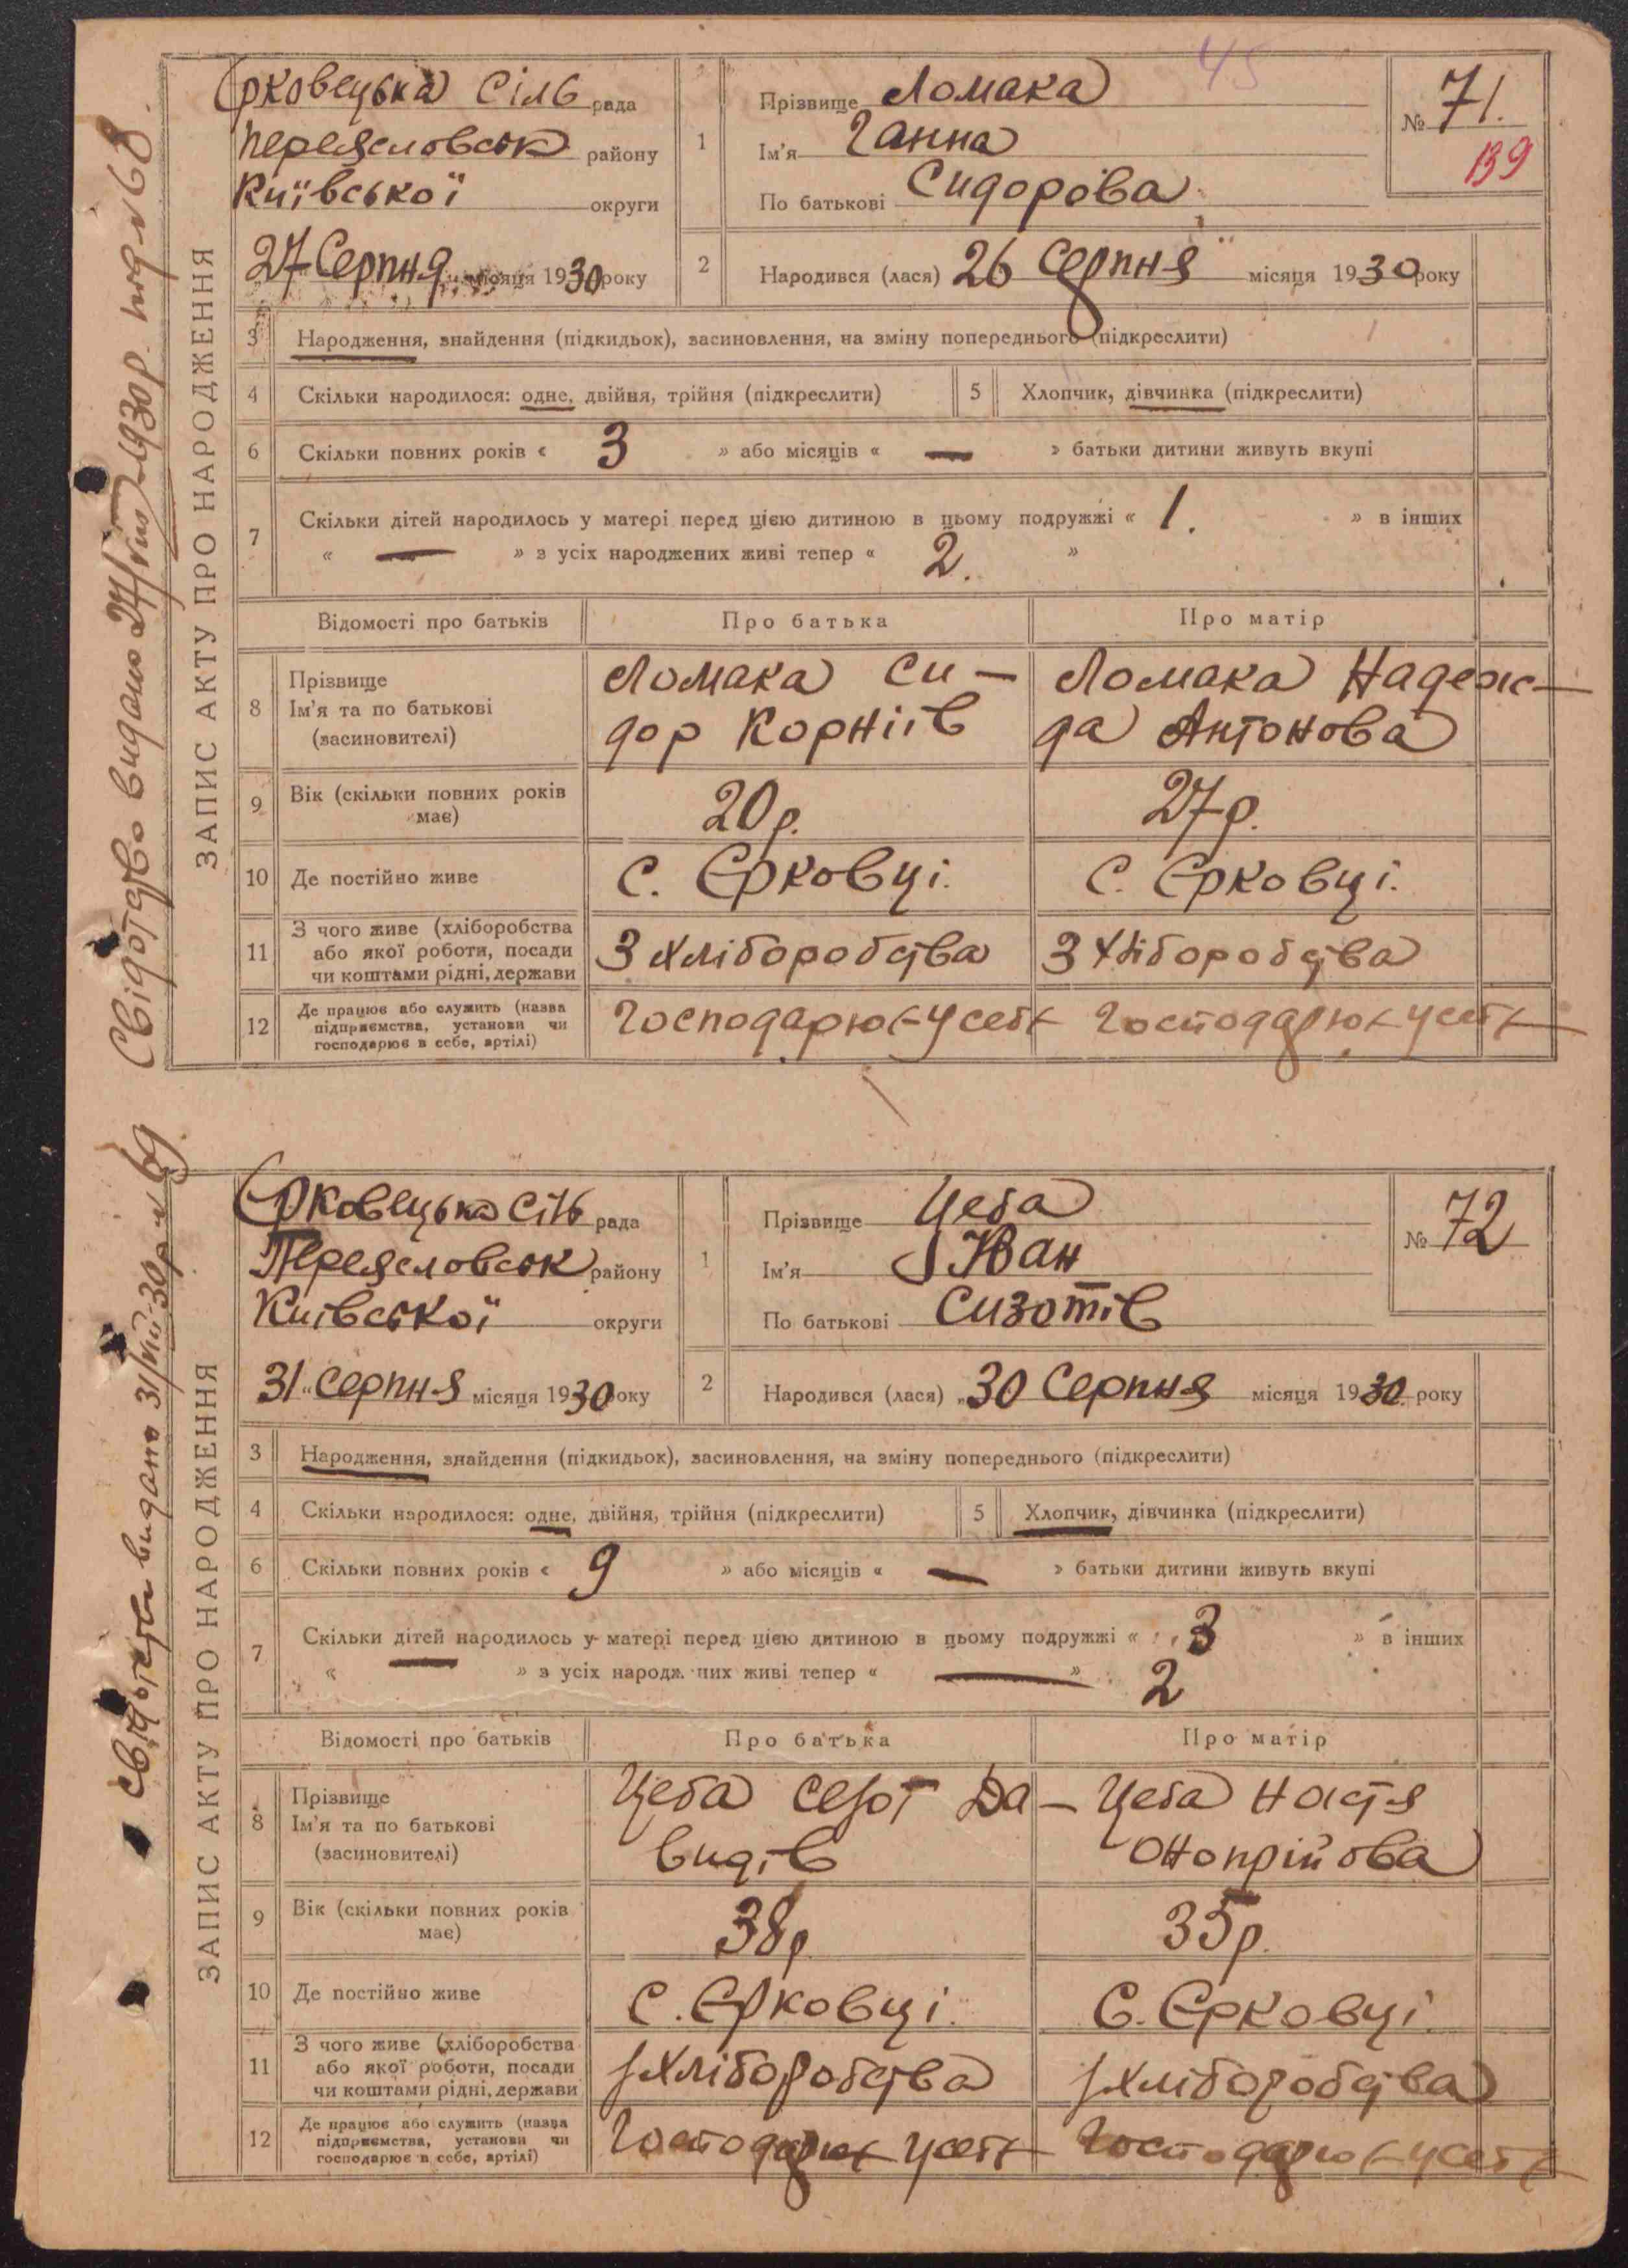 45
Свідотство видано 27/VIII-1930р. под № 68.
ЗАПИС АКТУ ПРО НАРОДЖЕННЯ
Єрковецька Сіль рада
Переяславськ району
Київської округи
27 Серпня місяця 1930 року
1 Прізвище Ломака
Ім'я Ганна
По батькові Сидорова
№ 71.
139
2 Народився (лася) 26 Серпня місяця 1930 року
3 Народження, знайдення (підкидьок), засиновлення, на зміну попереднього (підкреслити)
4 Скільки народилося: одне, двійня, трійня (підкреслити) 5 Хлопчик, дівчинка (підкреслити)
6 Скільки повних років « 3 » або місяців « — » батьки дитини живуть вкупі
7 Скільки дітей народилось у матері перед цією дитиною в цьому подружжі « 1. » в інших
« — » з усіх народжених живі тепер « 2. »
Відомості про батьків Про батька Про матір
8 Прізвище
Ім'я та по батькові
(засиновителі)
Ломака Си-
дор Корніїв
Ломака Надеж-
да Антонова
9 Вік (скільки повних років
має)
20р. 27р.
10 Де постійно живе с. Єрковці. с. Єрковці.
11 З чого живе (хліборобства
або якої роботи, посади
чи коштами рідні, держави
З хліборобства З хліборобства
12 Де працює або служить (назва
підприємства, установи чи
господарює в себе, артілі)
Господарює у себе Господарює у себе
видано 31/VIII-30р № 69
ЗАПИС АКТУ ПРО НАРОДЖЕННЯ
Єрковецька Сіль рада
Переяславськ району
Київської округи
31 " Серпня місяця 1930 року
1 Прізвище Цеба
Ім'я Іван
По батькові Сизотів
№ 72
2 Народився (лася) „30 Серпня місяця 1930 року
3 Народження, знайдення (підкидьок), засиновлення, на зміну попереднього (підкреслити)
4 Скільки народилося: одне, двійня, трійня (підкреслити) 5 Хлопчик, дівчинка (підкреслити)
6 Скільки повних років « 9 » або місяців « — » батьки дитини живуть вкупі
7 Скільки дітей народилось у матері перед цією дитиною в цьому подружжі « 3 » в інших
« — » з усіх народж. них живі тепер « — » 2
Відомості про батьків Про батька Про матір
8 Прізвище
Ім'я та по батькові
(засиновителі)
Цеба Сезот Да-
видів
Цеба Настя
Онопрійова
9 Вік (скільки повних років
має)
38р 35р.
10 Де постійно живе с. Єрковці. с. Єрковці.
11 З чого живе (хліборобства
або якої роботи, посади
чи коштами рідні, держави
З хліборобства З хліборобства
12 Де працює або служить (назва
підприємства, установи чи
господарює в себе, артілі)
Господарює у себе Господарює у себе